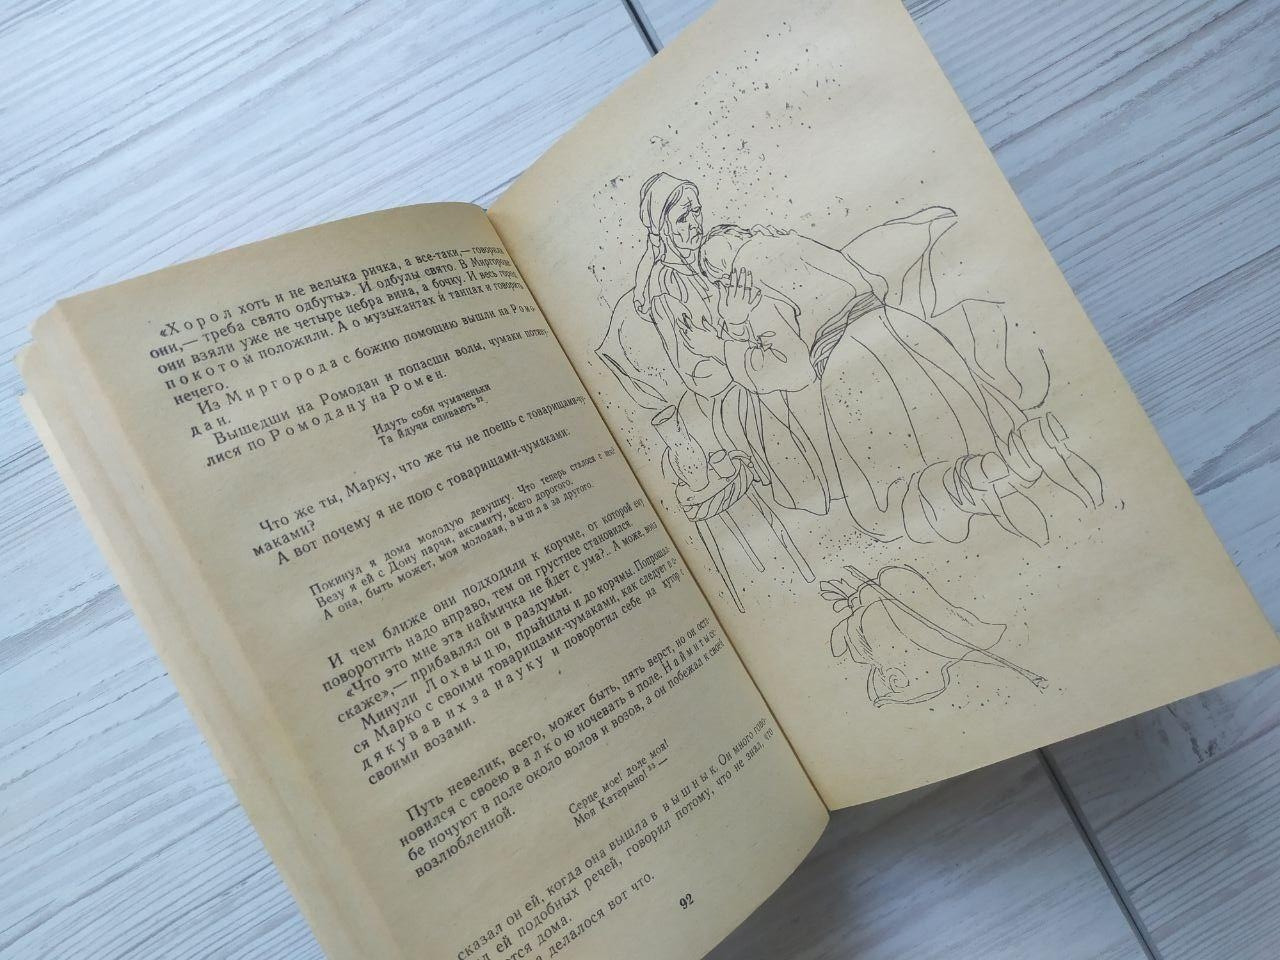 «Хорол хоть и не велыка ричка, а все-таки,— говорили
они,— треба свято одбуты». И одбулы свято. В Миргороде
они взяли уже не четыре цебра вина, а бочку. И весь город
покотом положили. А о музыкантах и танцах и говорить
нечего.
Из Миргорода с божию помощию вышли на Ромо-
дан.
Вышедши на Ромодан и попасши волы, чумаки потяну-
лися по Ромодану на Ромен.
Идуть соби чумаченьки
Та йдучи спивають
Что же ты, Марку, что же ты не поешь с товарищами-чу-
маками?
А вот почему я не пою с товарищами-чумаками:
Покинул я дома молодую девушку. Что теперь сталося с нею?
Везу я ей с Дону парчи, аксамиту, всего дорогого.
А она, быть может, моя молодая, вышла за другого.
И чем ближе они подходили к корчме, от которой ему
поворотить надо вправо, тем он грустнее становился.
«Что это мне эта наймичка не йдет с ума?.. А може, вона
скаже»,— прибавлял он в раздумьи.
Минули Лохвыцю, прыйшлы и до корчмы. Попрощал-
ся Марко с своими товарищами-чумаками, как следует, по-
дякував их за науку и поворотил себе на хутор с
своими возами.
Путь невелик, всего, может быть, пять верст, но он оста-
новился с своею валкою ночевать в поле. Наймиты се-
бе ночуют в поле около волов и возов, а он побежал к своей
возлюбленной.
Серце мое! доле моя!
Моя Катерыно! —
сказал он ей, когда она вышла в вышнык. Он много гово-
ей подобных речей, говорил потому, что не знал, что
дома.
делалося вот что.
92